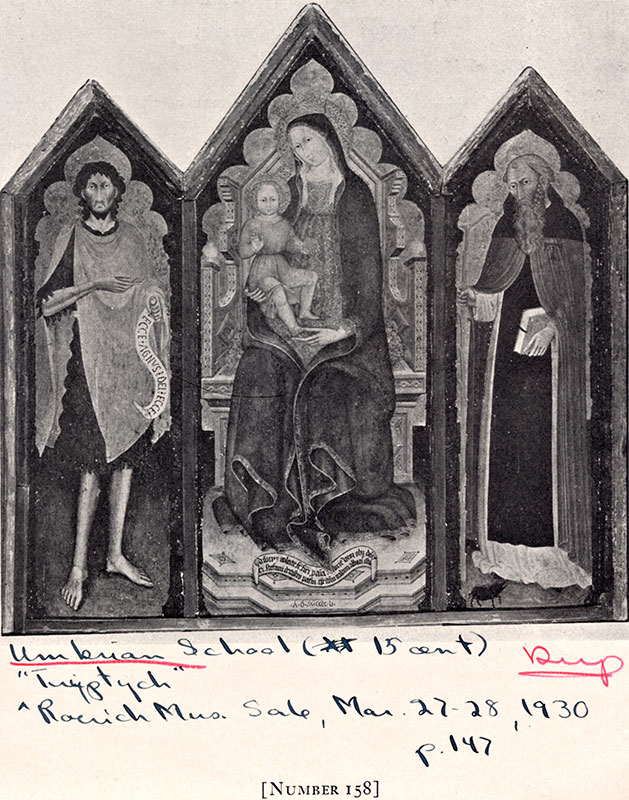 ECCE·AGNUS·DEI·ECCE·
Umbrian School (15 cent)
Dup
"Triptych"
^ Roerich Mus. Sale, Mar. 27-28, 1930
p. 147
[NUMBER 158]